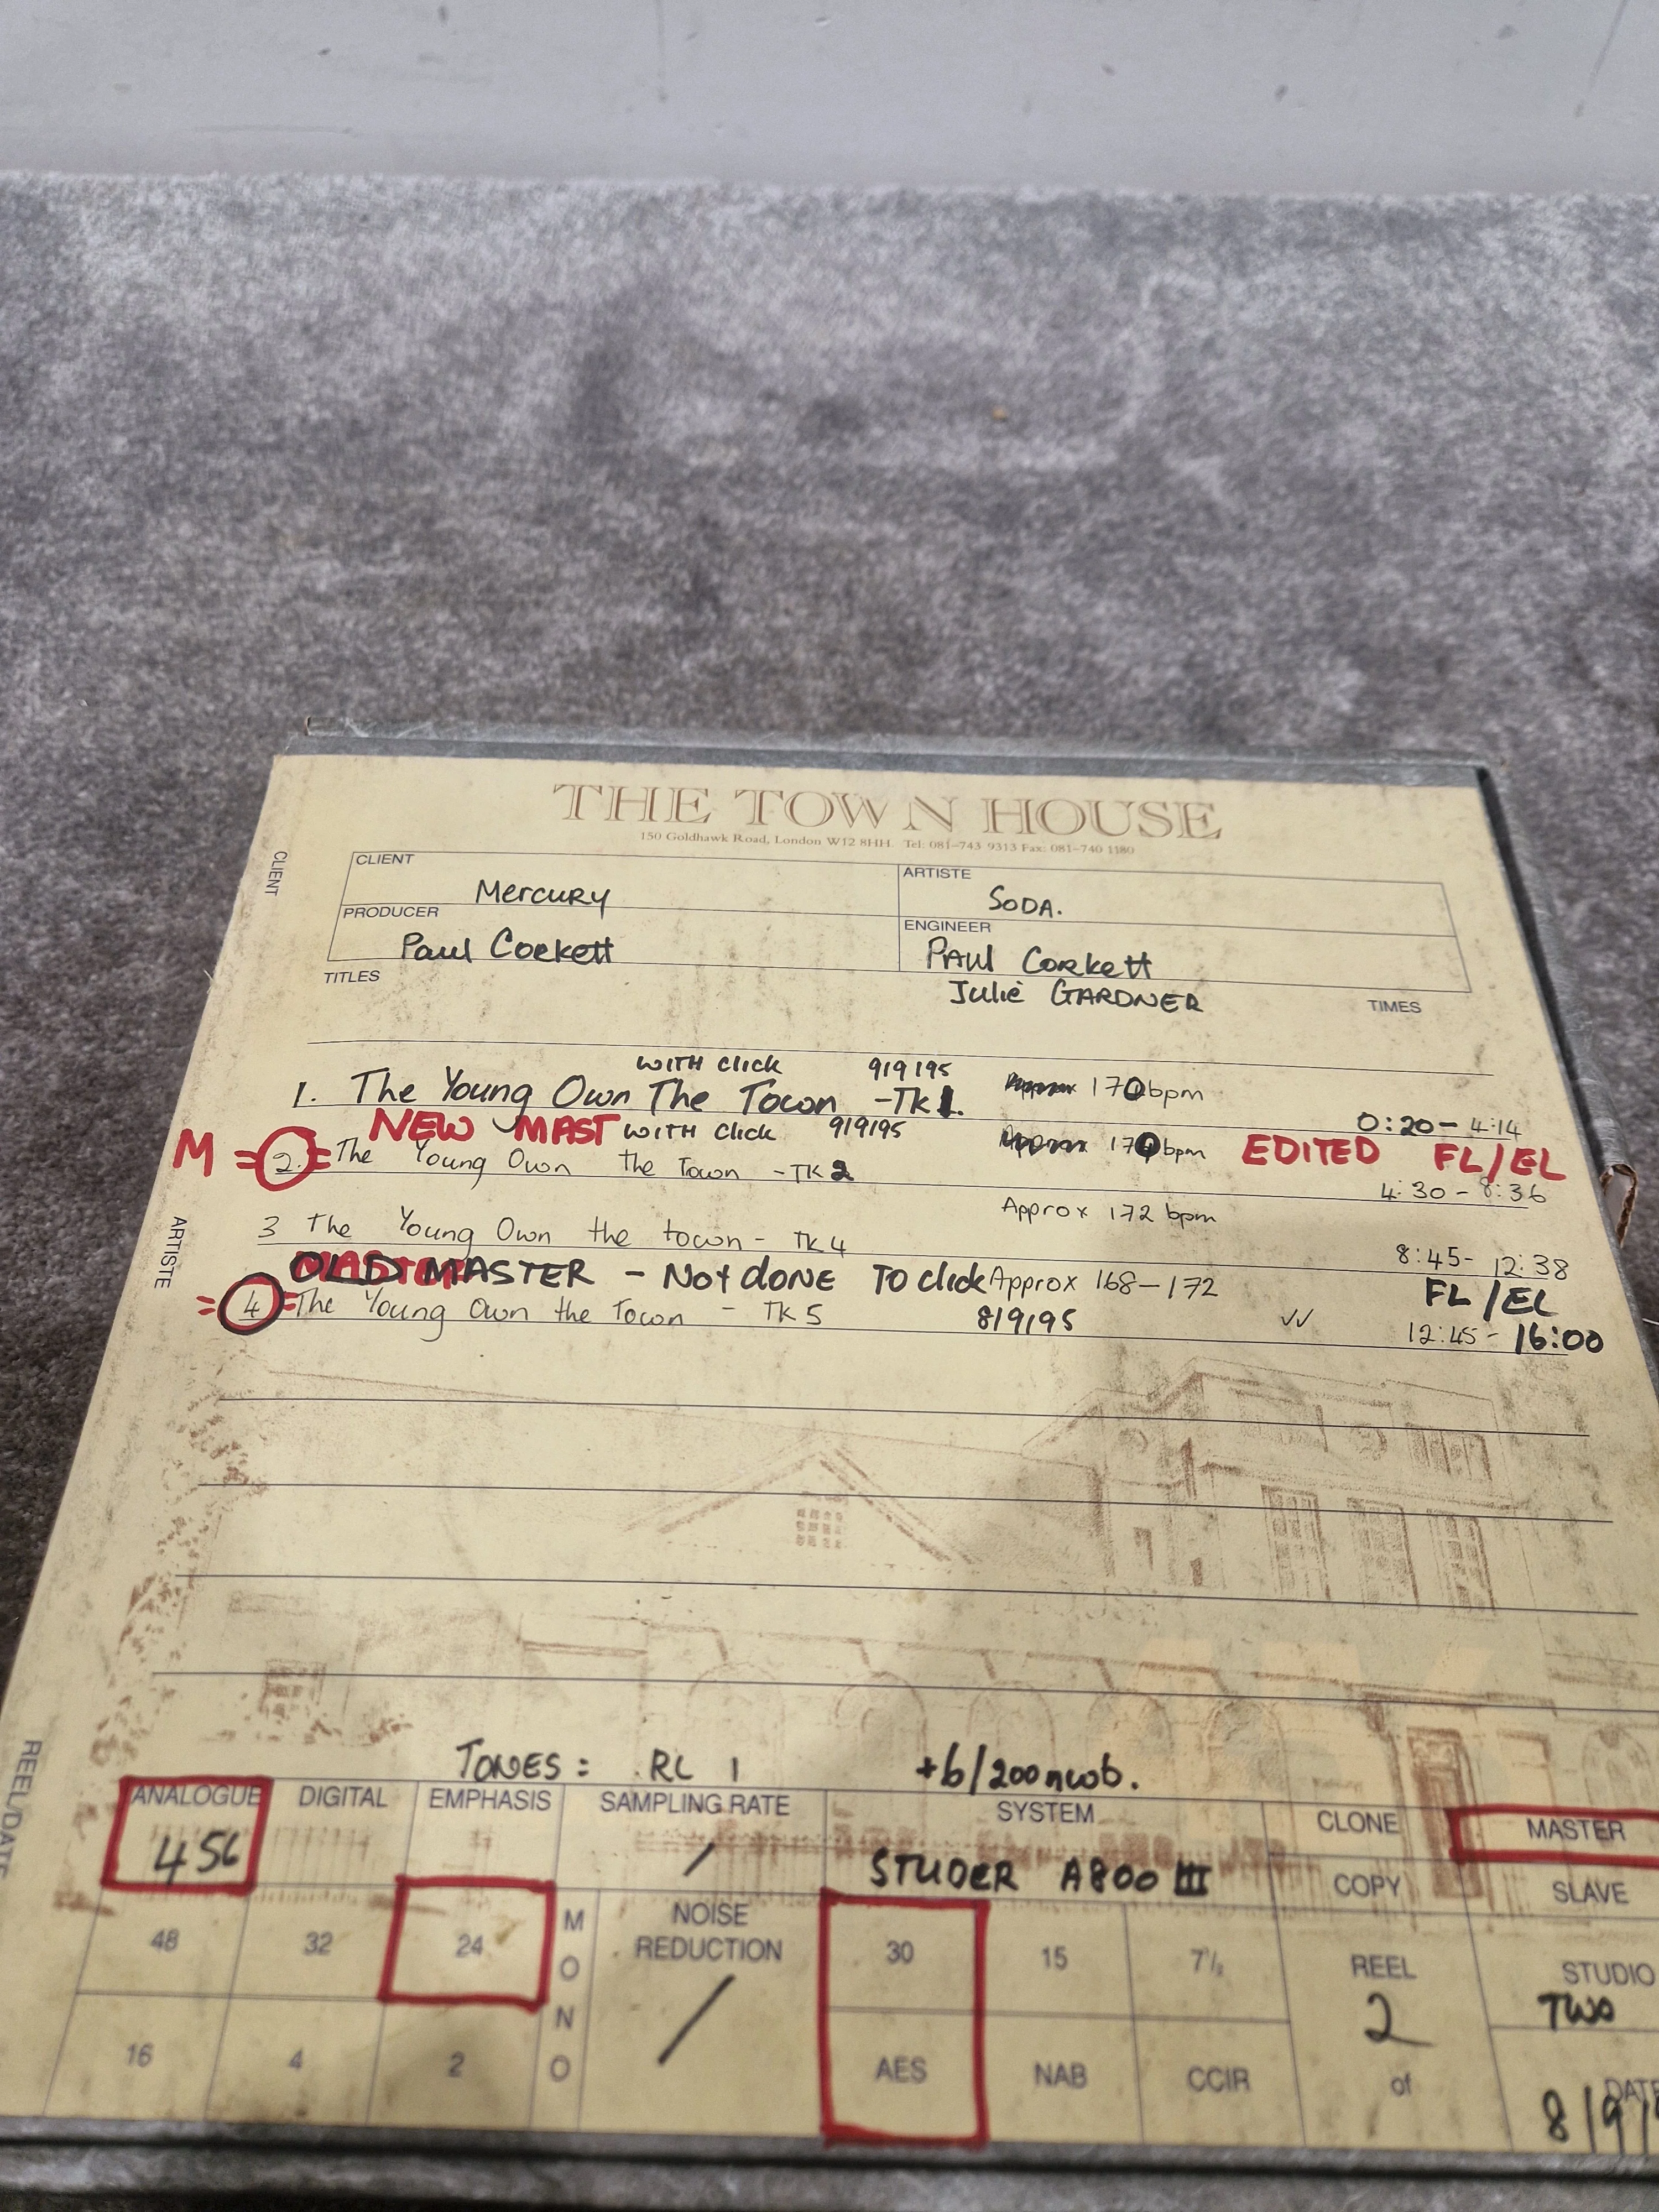 THE TOWN HOUSE
150 Goldhawk Road, London W12 8HH. Tel: 081-743 9313 Fax: 081-740 1180
CLIENT
CLIENT Mercury ARTISTE SODA.
PRODUCER Paul Corkett ENGINEER PAUL Corkett
Julie GARDNER
TITLES TIMES
WITH click 9/9/95
1. The Young Own The Town -TK 1. 170bpm 0:20- 4:14
NEW MAST WITH click 9/9/95
M =2.= The Young Own the Town -TK 2 170bpm EDITED FL/EL
4:30 - 8:36
Approx 172 bpm
3 The Young Own the town - TK 4 8:45- 12:38
OLD MASTER - Not dONE TO click Approx 168-172 FL/EL
=4= The Young Own the Town - TK 5 8/9/95 ✓✓ 12:45- 16:00
ARTISTE
REEL/DATE
TONES: RL 1 +6/200nwb.
ANALOGUE DIGITAL EMPHASIS SAMPLING RATE SYSTEM CLONE MASTER
456 / STUDER A800 III COPY SLAVE
48 32 24 MONO NOISE REDUCTION 30 15 7½ REEL STUDIO
/ 2 TWO
16 4 2 AES NAB CCIR of DATE
8/9/